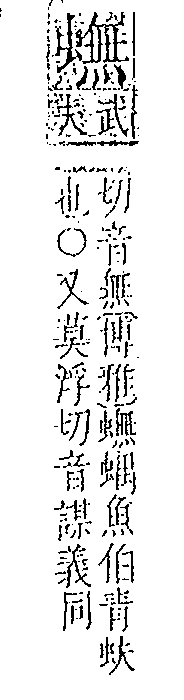 蟱
武夫
切音無博雅蟱蜛魚伯青蚨
也○又莫浮切音謀義同